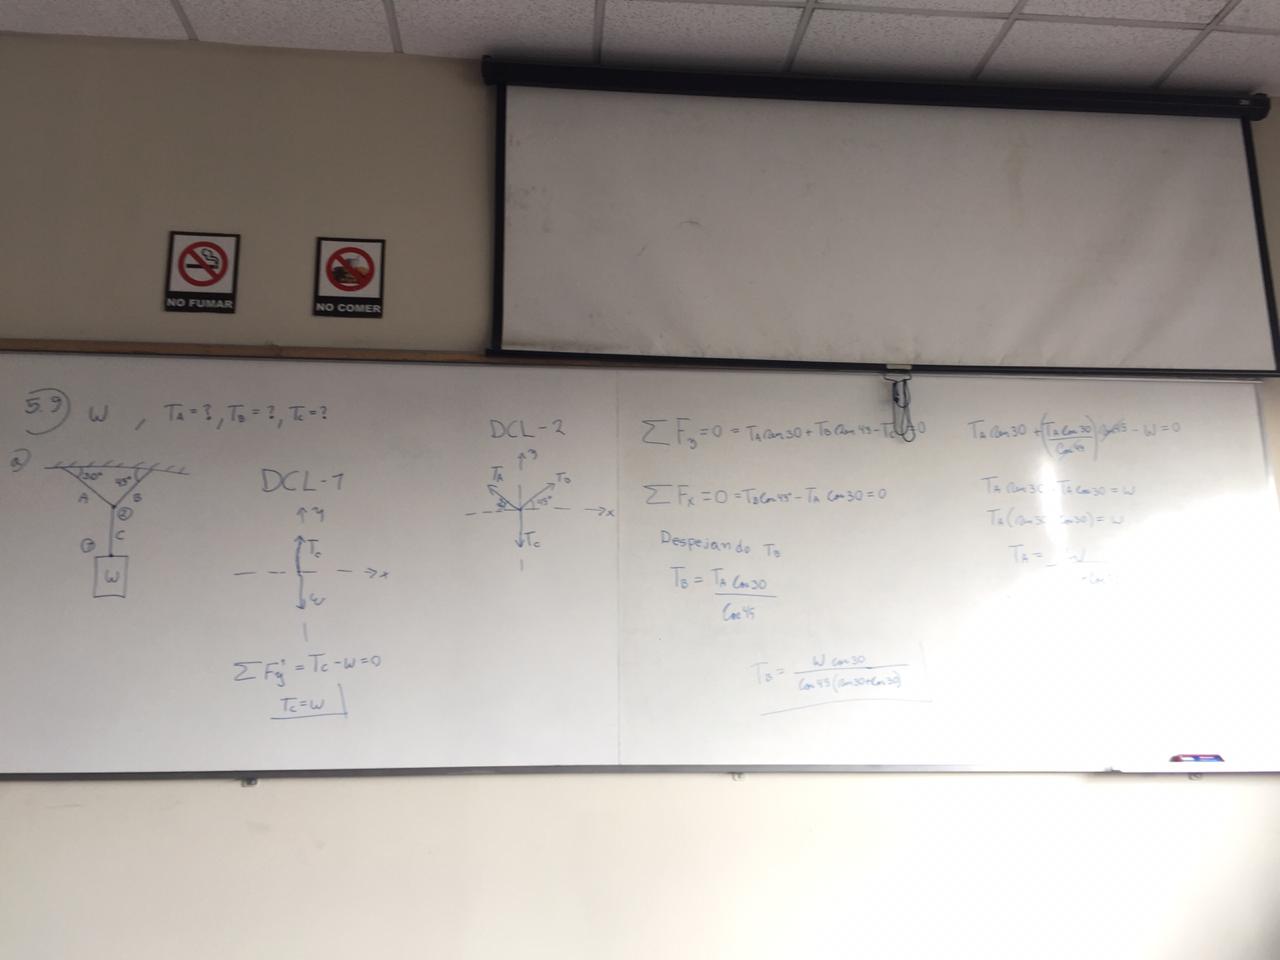 NO FUMAR
NO COMER
5.9) W , TA = ?, TB = ?, TC = ?
a)
30° 45°
A B
2
C
1
W
DCL-1
y
Tc
x
w
ΣFy = Tc - w = 0
Tc = w
DCL-2
y
TA TB
45°
x
Tc
ΣFy = 0 = TA sen 30 + TB sen 45 - Tc = 0
ΣFx = 0 = TB Cos 45° - TA Cos 30 = 0
Despejando TB
TB = TA Cos 30
Cos 45
TB = W cos 30
Cos 45 (sen 30 + Cos 30)
TA sen 30 + (TA Cos 30 / Cos 45) sen 45 - W = 0
TA sen 30 TA Cos 30 = W
TA (sen 30 Cos 30) = W
TA = W